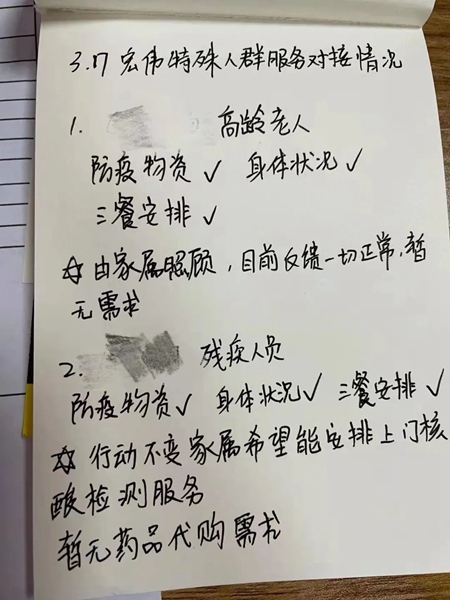 3.17 宏伟特殊人群服务对接情况
1. 高龄老人
防疫物资✓ 身体状况✓
三餐安排✓
☆ 由家属照顾,目前反馈一切正常,暂
无需求
2. 残疾人员
防疫物资✓ 身体状况✓ 三餐安排✓
☆ 行动不变家属希望能安排上门核
酸检测服务
暂无药品代购需求